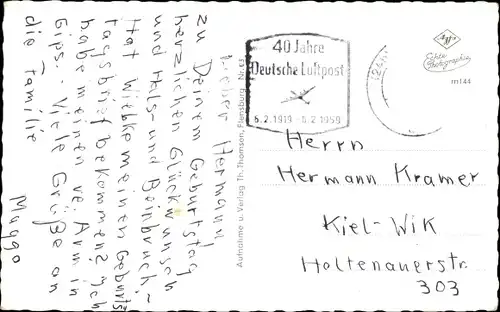 Lieber Hermann,
zu Deinem Geburtstag
herzlichen Glückwunsch
und Hals- und Beinbruch,-
Hat Wiebke meinen Geburts
tagsbrief bekommen? Ich
habe meinen re. Arm in
Gips. Viele Grüße an
die Familie
Maggo
Aufnahme u. Verlag Th. Thomsen, Flensburg Nr. 63
40 Jahre
Deutsche Luftpost
5.2.1919 - 5.2.1959
Echte
Photographie
m144
Herrn
Hermann Kramer
Kiel-Wik
Holtenauerstr.
303